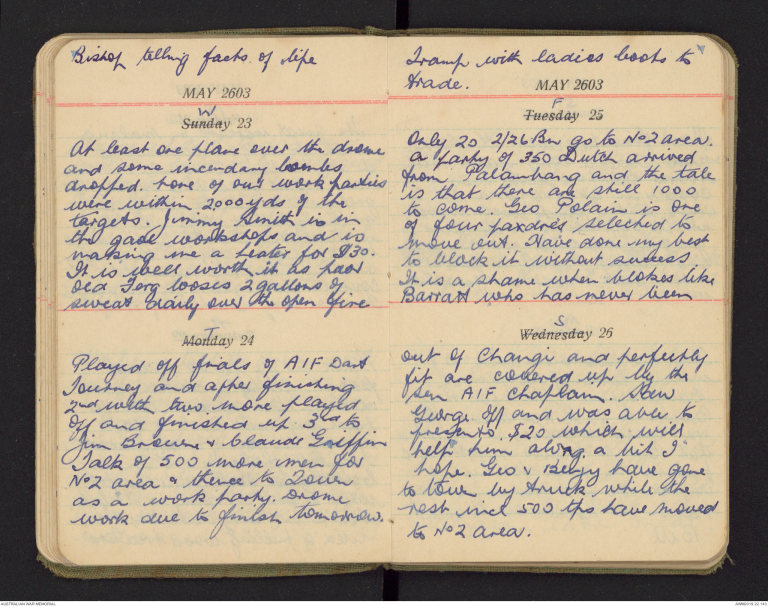 Bishop telling facts of life
MAY 2603
W
Sunday 23
At least one plane over the drome
and some incendary bombs
dropped. Some of our work parties
were within 2000 yds of the
targets. Jimmy Smith is in
the gaol workshops and is
making me a heater for $30.
It is well worth it as poor
old Ferg looses 2 gallons of
sweat daily over the open fire
T
Monday 24
Played off finals of AIF Dart
Tourney and after finishing
2nd with two more played
off and finished up 3rd to
Jim Browne & Claude Griffin
Talk of 500 more men for
No2 area & thence to Town
as a work party. Drome
work due to finish tomorrow.
Tramp with ladies boots to
trade.
MAY 2603
F
Tuesday 25
Only 20 2/26 Bn go to No2 area.
A party of 350 Dutch arrived
from Palambang and the tale
is that there are still 1000
to come. Geo Polain is one
of four padres selected to
move out. Have done my best
to block it without success
It is a shame when blokes like
Barratt who has never been
S
Wednesday 26
out of Changi and perfectly
fit are covered up by the
sen AIF Chaplain. Saw
George off and was able to
present $20 which will
help him along a bit I
hope. Geo & Benjy have gone
to town by truck while the
rest incl 500 tps have moved
to No2 area.
AUSTRALIAN WAR MEMORIAL